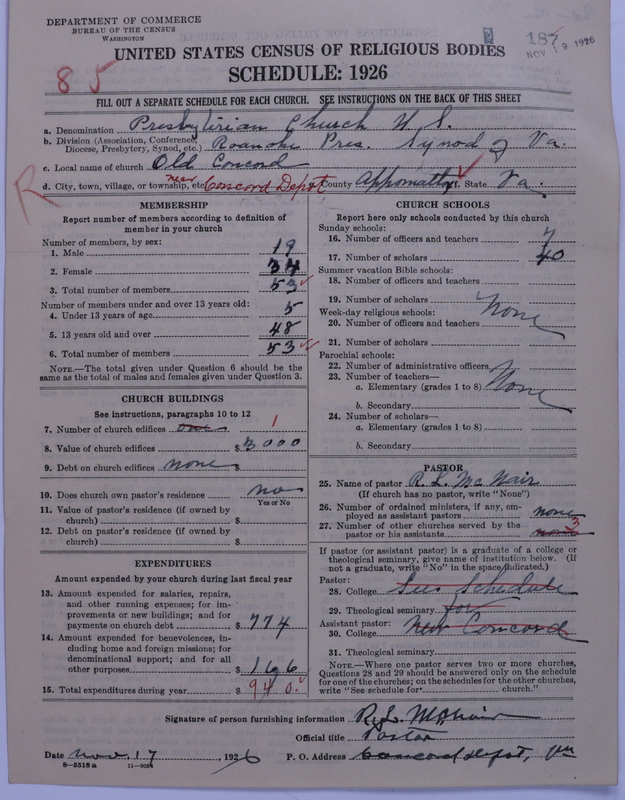 DEPARTMENT OF COMMERCE
BUREAU OF THE CENSUS
WASHINGTON
187
NOV 19 1926
UNITED STATES CENSUS OF RELIGIOUS BODIES
SCHEDULE: 1926
85
FILL OUT A SEPARATE SCHEDULE FOR EACH CHURCH. SEE INSTRUCTIONS ON THE BACK OF THIS SHEET
a. Denomination Presbyterian Church U. S.
b. Division (Association, Conference, Diocese, Presbytery, Synod, etc.) Roanoke Pres. Synod of Va.
c. Local name of church Old Concord
R
d. City, town, village, or township, etc. near Concord Depot County Appomattox State Va.
MEMBERSHIP
Report number of members according to definition of
member in your church
Number of members, by sex:
1. Male 19
2. Female 34
3. Total number of members 53
Number of members under and over 13 years old:
4. Under 13 years of age 5
5. 13 years old and over 48
6. Total number of members 53
NOTE.—The total given under Question 6 should be the
same as the total of males and females given under Question 3.
CHURCH BUILDINGS
See instructions, paragraphs 10 to 12
7. Number of church edifices one 1
8. Value of church edifices $ 3000
9. Debt on church edifices none $
10. Does church own pastor's residence no
Yes or No
11. Value of pastor's residence (if owned by
church) $
12. Debt on pastor's residence (if owned by
church) $
EXPENDITURES
Amount expended by your church during last fiscal year
13. Amount expended for salaries, repairs,
and other running expenses; for im-
provements or new buildings; and for
payments on church debt $ 774
14. Amount expended for benevolences, in-
cluding home and foreign missions; for
denominational support; and for all
other purposes $ 166
15. Total expenditures during year $ 940.
CHURCH SCHOOLS
Report here only schools conducted by this church
Sunday schools:
16. Number of officers and teachers 7
17. Number of scholars 40
Summer vacation Bible schools:
18. Number of officers and teachers
19. Number of scholars None
Week-day religious schools:
20. Number of officers and teachers
21. Number of scholars
Parochial schools:
22. Number of administrative officers
23. Number of teachers—
a. Elementary (grades 1 to 8) None
b. Secondary
24. Number of scholars—
a. Elementary (grades 1 to 8)
b. Secondary
PASTOR
25. Name of pastor R. L. McNair
(If church has no pastor, write "None")
26. Number of ordained ministers, if any, em-
ployed as assistant pastors none
27. Number of other churches served by the
pastor or his assistants none 3
If pastor (or assistant pastor) is a graduate of a college or
theological seminary, give name of institution below. (If
not a graduate, write "No" in the space indicated.)
Pastor:
28. College See Schedule
29. Theological seminary for
Assistant pastor:
30. College New Concord
31. Theological seminary
NOTE.—Where one pastor serves two or more churches,
Questions 28 and 29 should be answered only on the schedule
for one of the churches; on the schedules for the other churches,
write "See schedule for church."
Signature of person furnishing information R. L. McNair
Official title Pastor
Date Nov. 17, 1926 P. O. Address Concord Depot, Va
8—5518a 11—9054